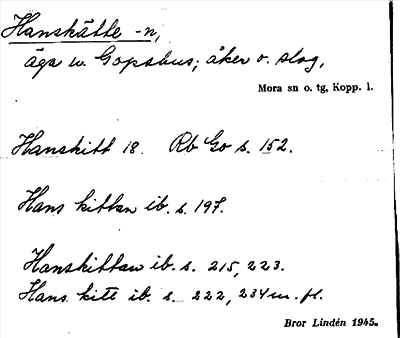 Hanskätte -n,
äga u. Gopshus; åker o. slog,
Mora sn o. tg, Kopp. l.
Hanskitt 18. Rb Go s. 152.
Hans kittan ib. s. 197.
Hanskittan ib. s. 215, 223.
Hans kite ib. s. 222, 234 m. fl.
Bror Lindén 1945.